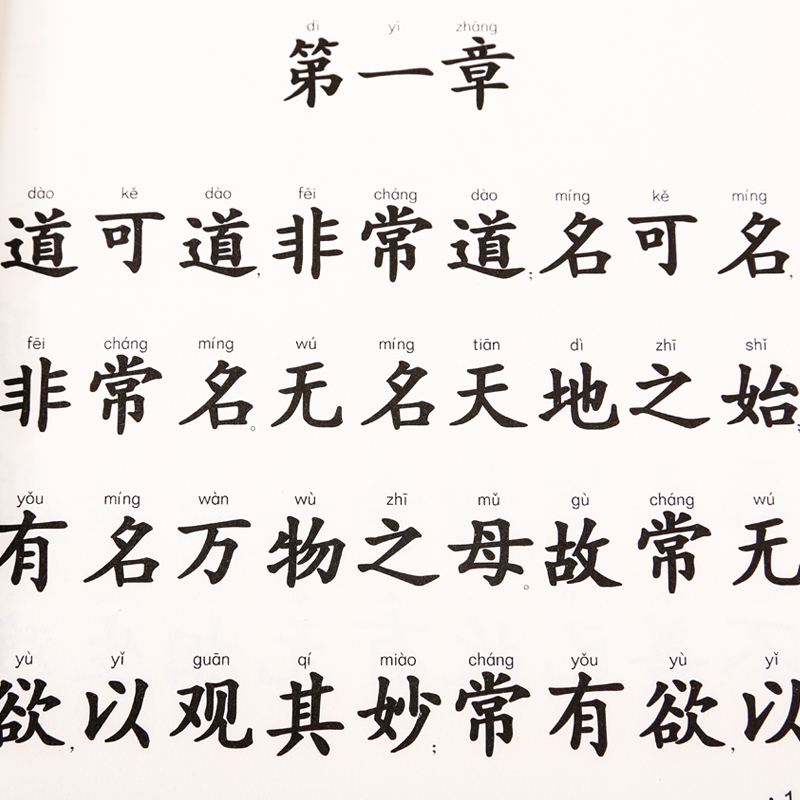 dì yī zhāng
第一章
dào kě dào fēi cháng dào míng kě míng
道可道,非常道;名可名,
fēi cháng míng wú míng tiān dì zhī shǐ
非常名。无名天地之始;
yǒu míng wàn wù zhī mǔ gù cháng wú
有名万物之母。故常无
yù yǐ guān qí miào cháng yǒu yù yǐ
欲,以观其妙;常有欲,以
· 1